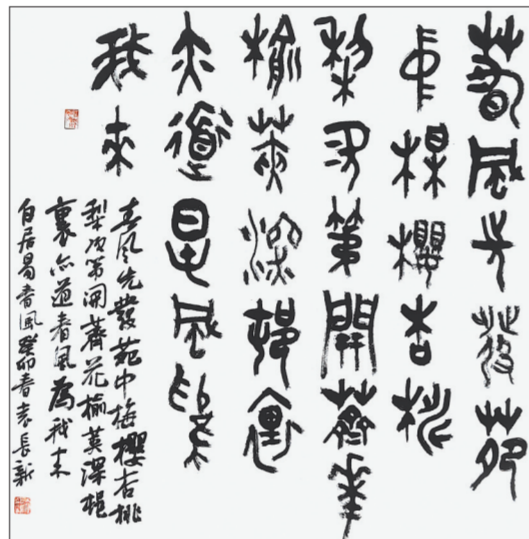 春風先發苑
中梅櫻杏桃
梨次第開薺花
榆莢深邨裏
亦道旾風為
我來
春風先發苑中梅櫻杏桃
梨次第開薺花榆莢深邨
裏亦道春風為我來
白居易春風癸卯春袁長新